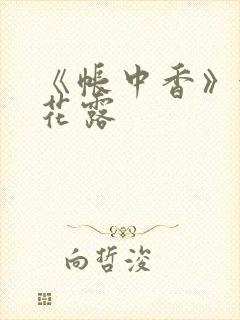 《帐中香》
花露
向哲浚